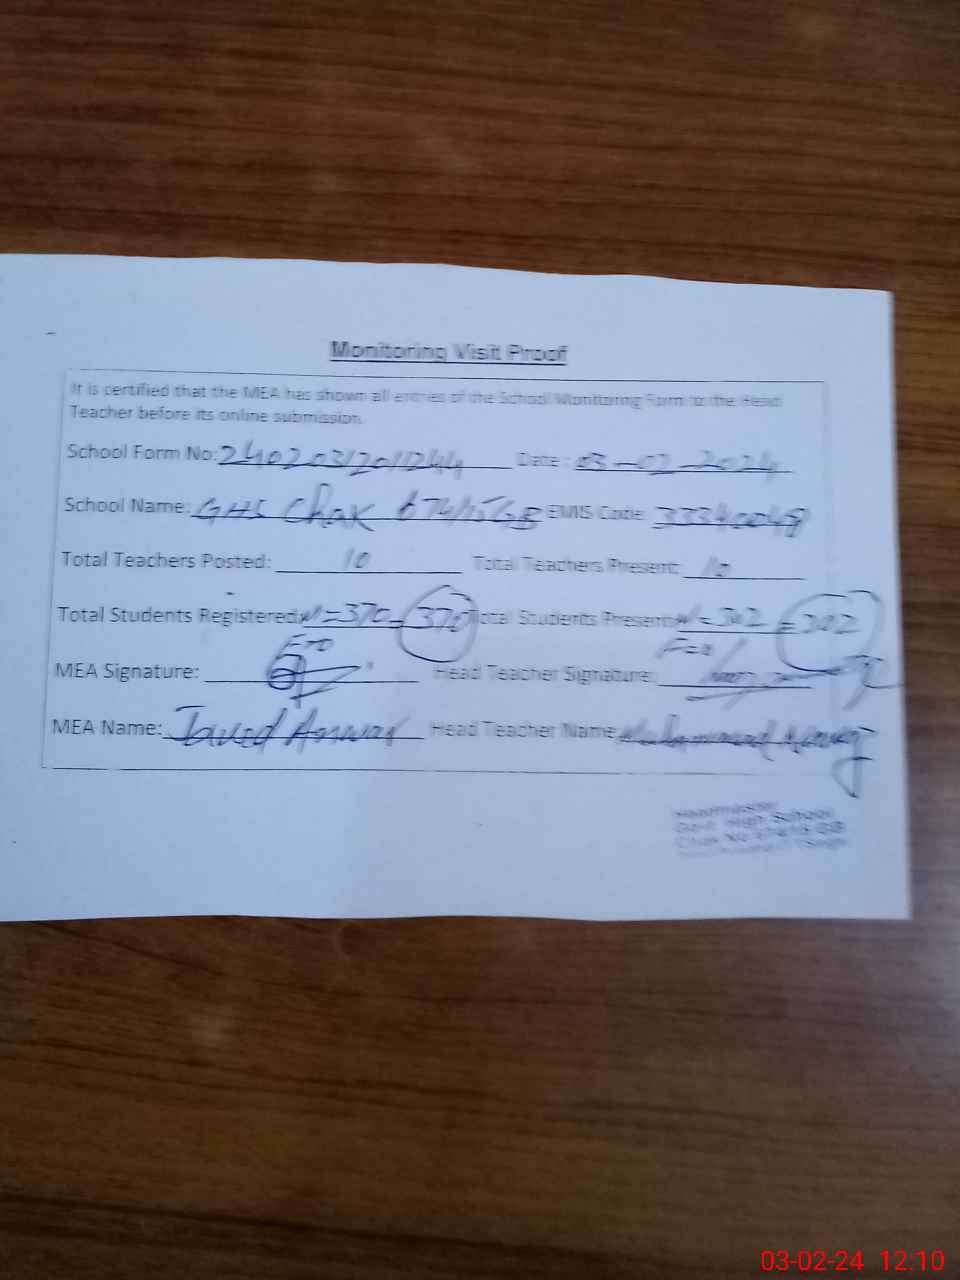 Monitoring Visit Proof
It is certified that the MEA has shown all entries of the School Monitoring Form to the Head
Teacher before its online submission.
School Form No: Date : 03-02-2024
School Name: GHS Chak 674/15GB EMIS Code: 33340049
Total Teachers Posted: 10 Total Teachers Present: 10
Total Students Registered: N=370=370 Total Students Present: N=302=302
F=0 F=0
MEA Signature: Head Teacher Signature:
MEA Name: Javed Anwar Head Teacher Name: Muhammad
Headmaster
Govt. High School
Chak No. 674/15 GB
03-02-24 12:10